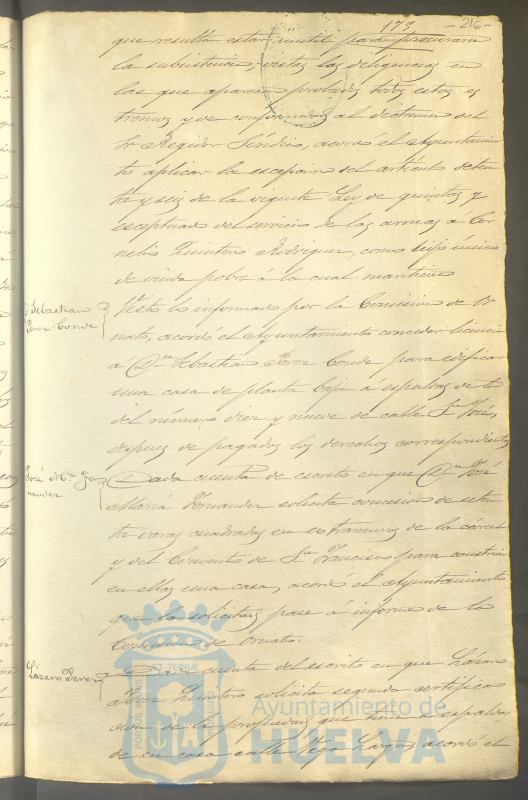 173
-216-
que resulta estar inutil para procurarse
la subsistencia; vistas las diligencias en
las que aparecen probados todos estos es
tremos y de conformidad al dictamen del
Sr Regidor Síndico, acordó el Ayuntamien
to aplicar la escepcion del artículo seten
ta y seis de la vigente Ley de quintas y
esceptuado del servicio de las armas á Cor
nelio Quintero Rodriguez, como hijo unico
de viuda pobre á la cual mantiene
D Sebastian
Perez Conde
Visto lo informado por la Comision de Or
nato, acordó el Ayuntamiento conceder licencia
á Dn Sebastián Perez Conde para edificar
una casa de planta baja a espaldas de la
del número diez y nueve de calle Sn José,
despues de pagados los derechos correspondientes
José Ma Fer
nandez
Dada cuenta de escrito en que Dn José
María Fernandez solicita concesion de seten
ta varas cuadradas en extramuros de la cárcel
y del Convento de Sn Francisco para construir
en ellas una casa, acordó el Ayuntamiento
que la solicitud pase á informe de la
Comision de Ornato.
Lázaro Perez
Dada cuenta del escrito en que Lázaro
Perez Quintero solicita segunda certifica
cion de la propiedad que tiene á espaldas
de su casa calle Vega Larga, acordó el
Ayuntamiento de
HUELVA